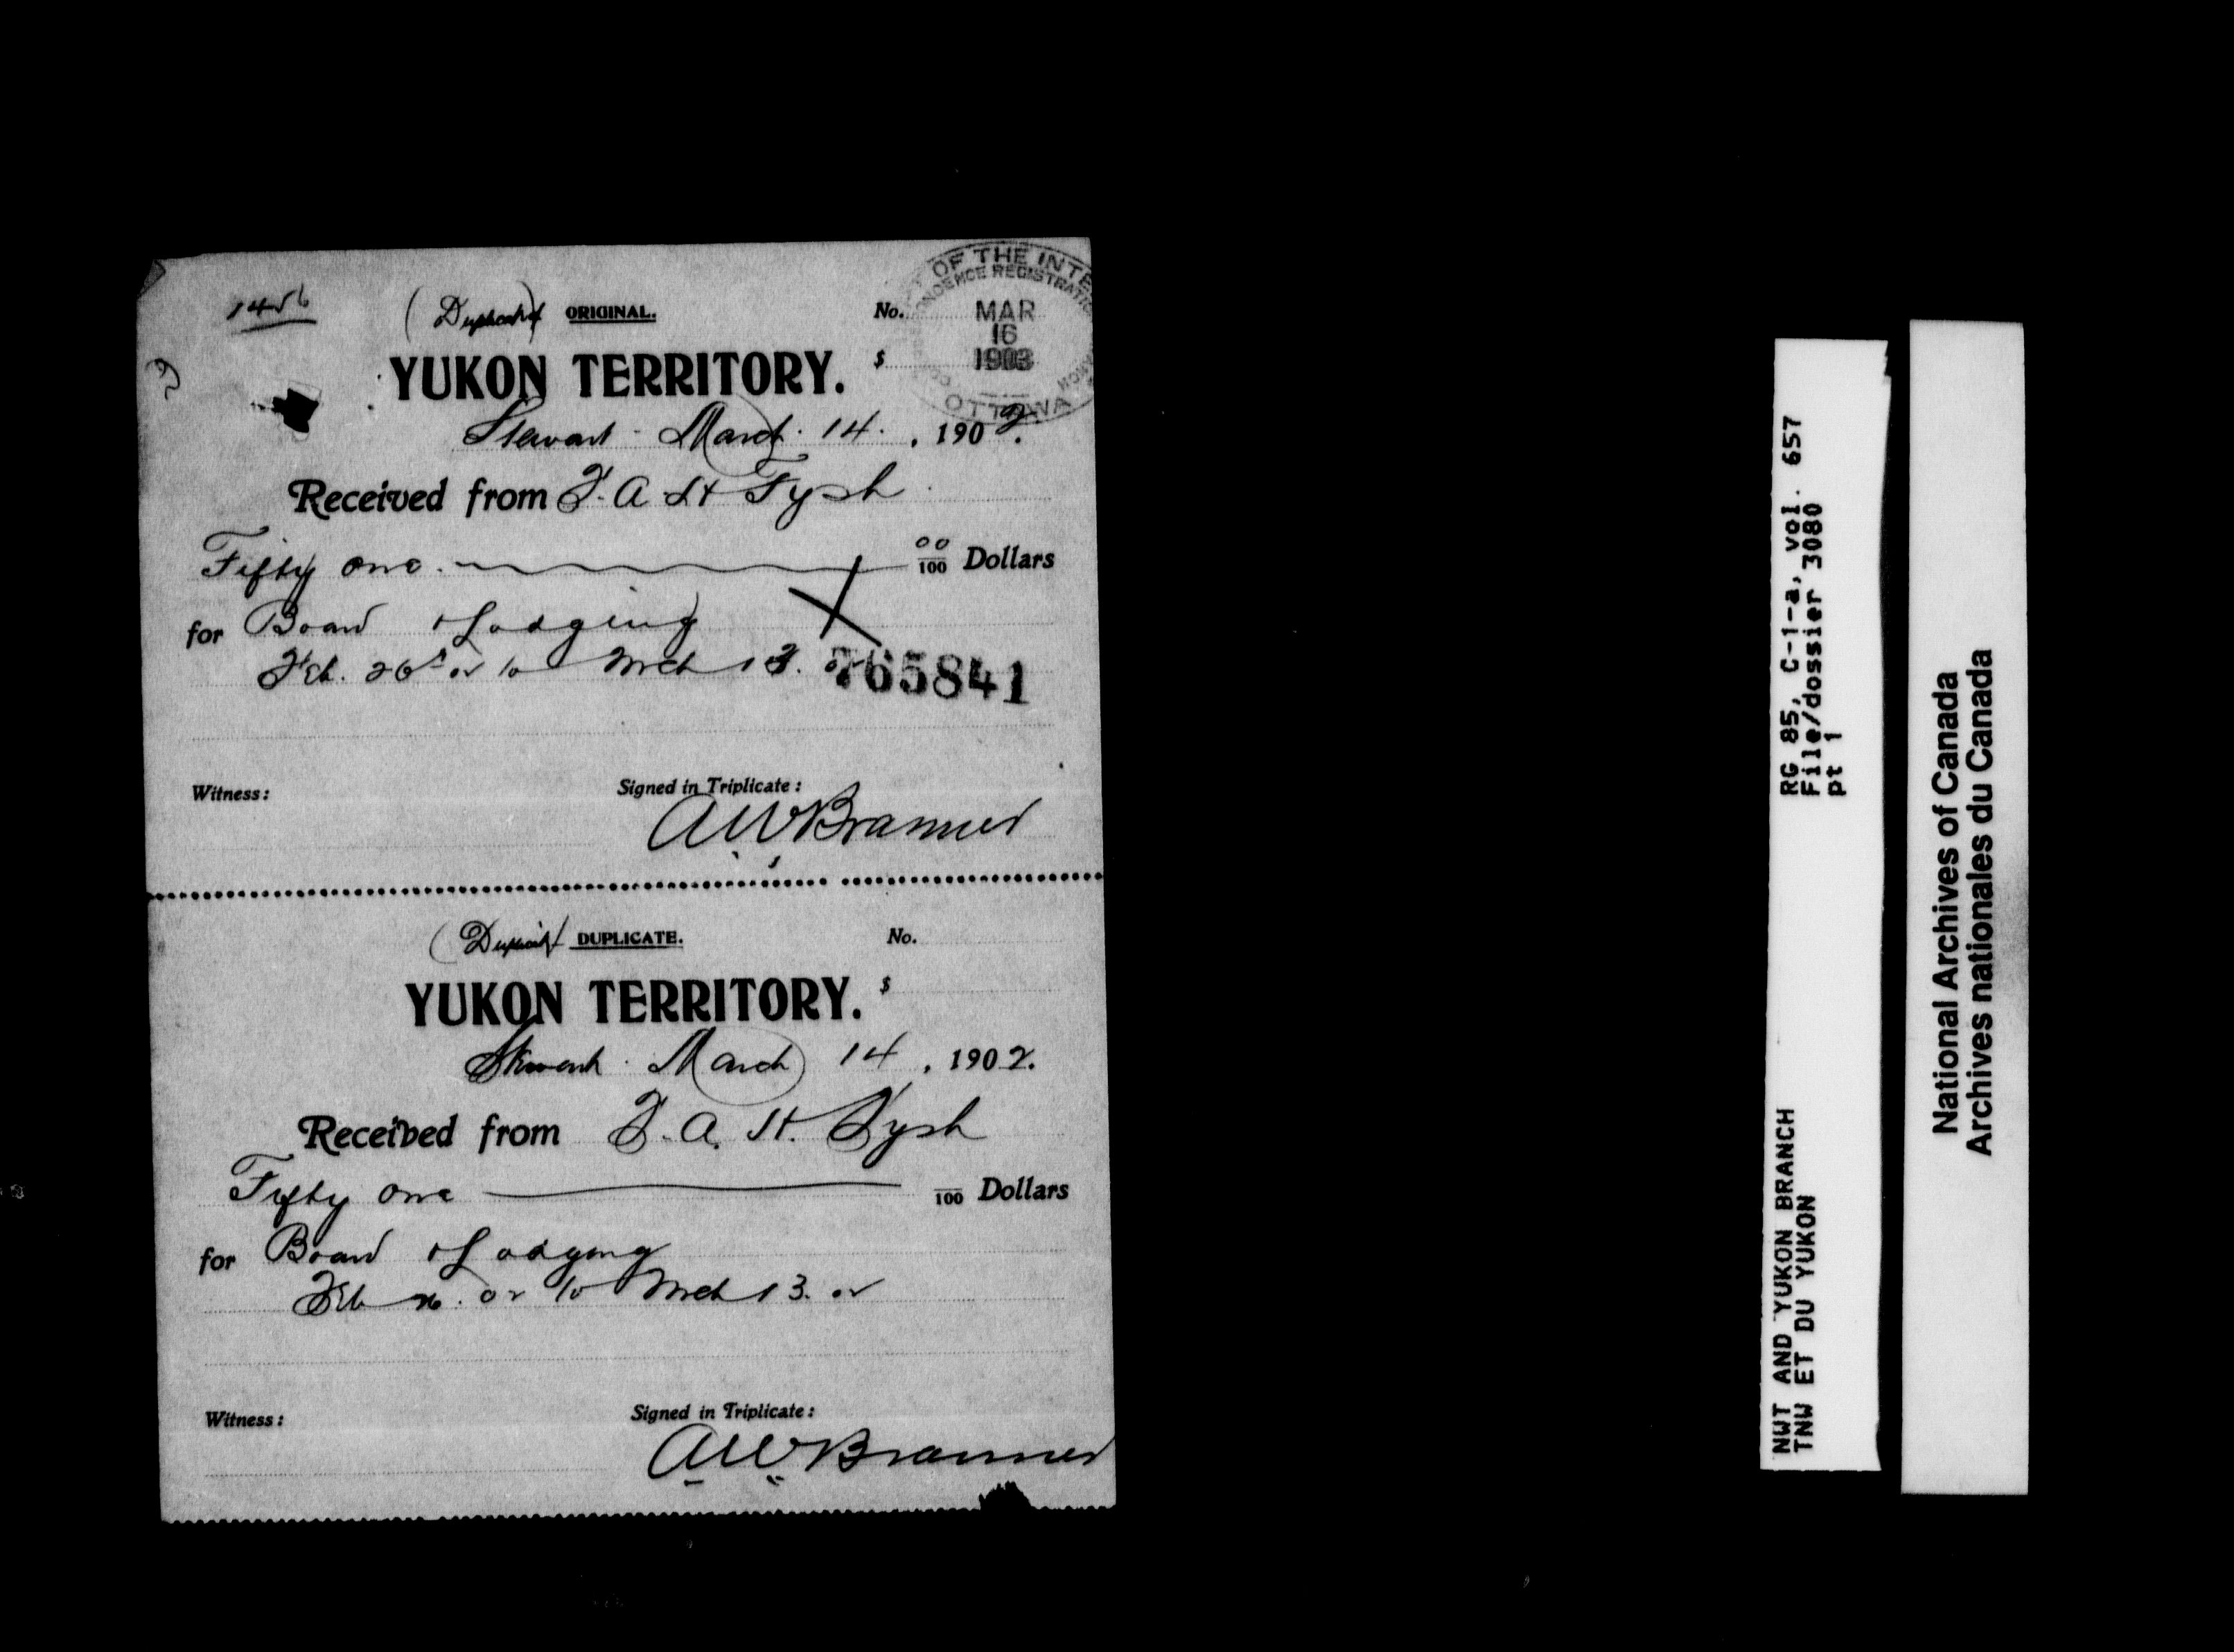 1456
(Duplicate) ORIGINAL. No.
OF THE INTE
ONDENCE REGISTRATIO
MAR
16
1903
OTTAWA
YUKON TERRITORY. $
Stewart - March 14. , 1902.
Received from F. A. H Fysh
Fifty one. 00/100 Dollars
for Board & Lodging
Feb. 26 02 to Mch 13. 02
765841
Witness: Signed in Triplicate:
AW Branner
(Duplicate) DUPLICATE. No.
YUKON TERRITORY. $
Stewart. March 14 , 1902.
Received from F. A. H. Fysh
Fifty one /100 Dollars
for Board & Lodging
Feb 26. 02 to Mch 13. 02
Witness: Signed in Triplicate:
AW Branner
RG 85, C-1-a, vol. 657
File/dossier 3080
pt 1
NWT AND YUKON BRANCH
TNW ET DU YUKON
National Archives of Canada
Archives nationales du Canada